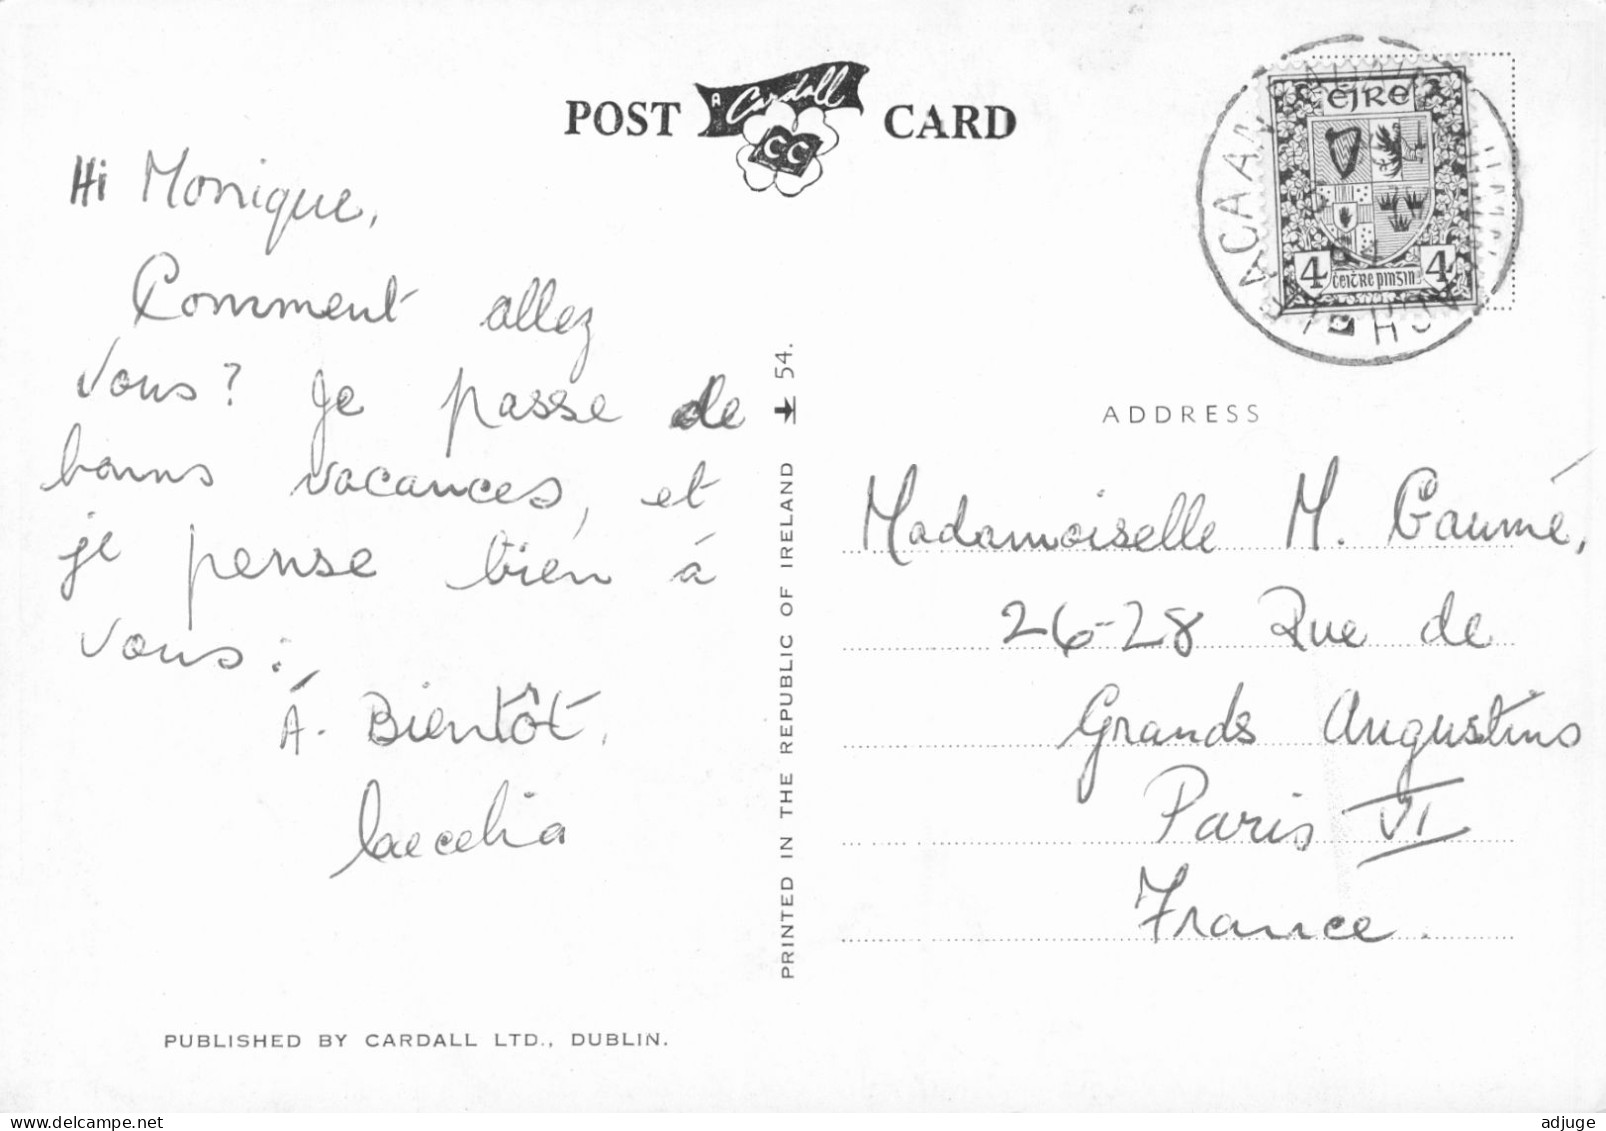 POST A Cardall CC CARD
Hi Monique,
Comment allez
vous? Je passe de
bonns vacances, et
je pense bien à
vous.
À. Bientôt.
Caecelia
PUBLISHED BY CARDALL LTD., DUBLIN.
PRINTED IN THE REPUBLIC OF IRELAND 54.
éire
4 ceitre pingin 4
ADDRESS
Madamoiselle M. Gaumé,
26-28 Rue de
Grands Augustins
Paris VI
France.
delcampe.net
adjuge